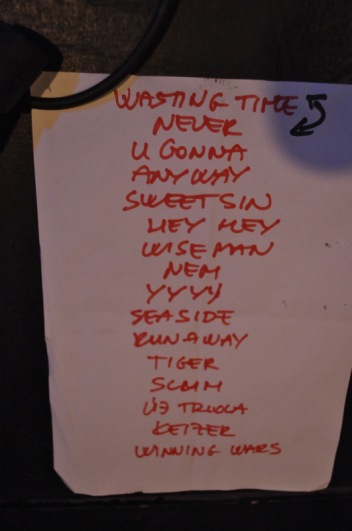 WASTING TIME
NEVER
U GONNA
ANYWAY
SWEET SIN
HEY HEY
WISEMAN
NEM
YYYY
SEASIDE
RUNAWAY
TIGER
SCMM
KEIZER
WINNING WARS